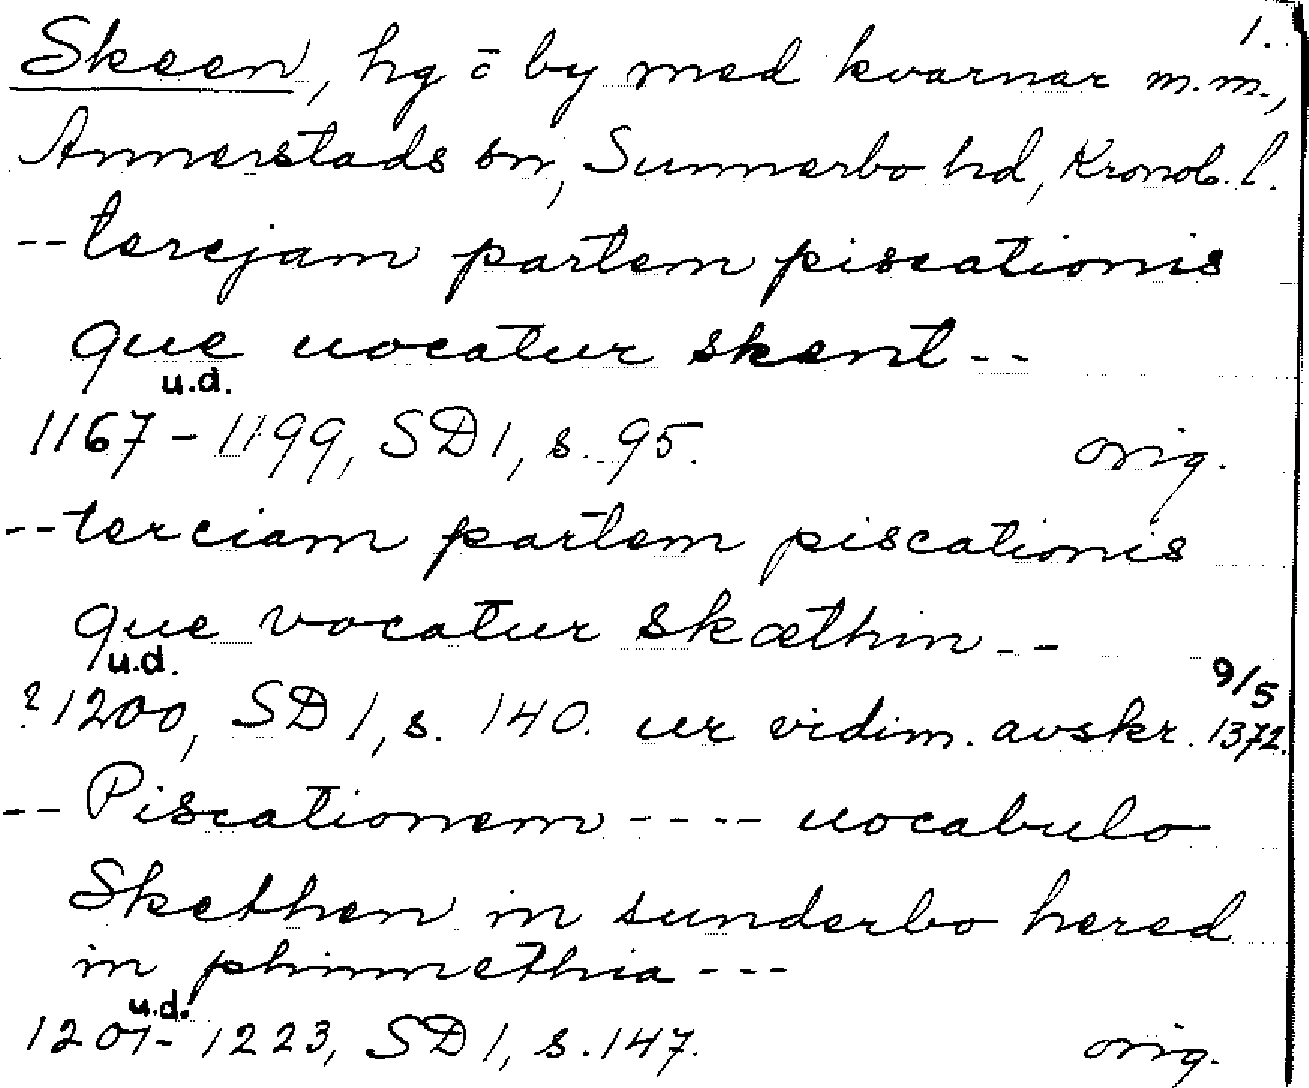 1.
Skeen, hg o by med kvarnar m.m.,
Annerstads sn, Sunnerbo hd, Kronob. l.
-- tercjam partem piscationis
que uocatur skent --
u.d.
1167 - 1199, SD 1, s. 95. orig.
-- terciam partem piscationis
que vocatur skæthin --
u.d.
? 1200, SD 1, s. 140. ur vidim. avskr. 9/5 1372.
-- Piscationem ---- uocabulo
Skethen in sunderbo hered
in phinnethia ---
u.d.
1201 - 1223, SD 1, s. 147. orig.